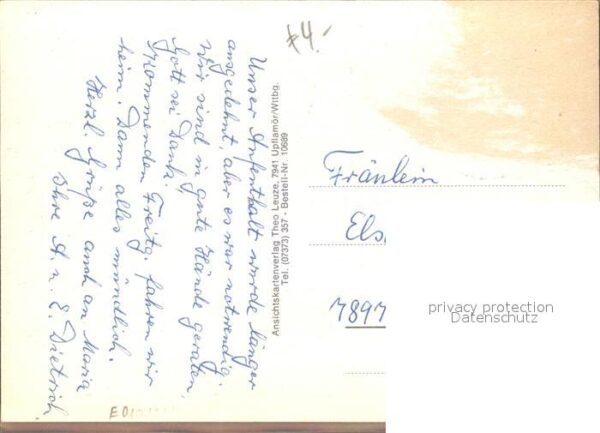 Unser Aufenthalt wurde länger
ausgedehnt, aber es war notwendig.
Wir sind in gute Hände geraten,
Gott sei Dank.
Kommenden Freitg. fahren wir
heim. Dann alles mündlich.
Herzl. Grüße auch an Maria
Ihre A. u. E. Dietrich
Ansichtskartenverlag Theo Leuze, 7941 Upflamör/Wttbg.
Tel. (07373) 357 - Bestell-Nr. 10689
4.-
Fräulein
Els.
7897
privacy protection
Datenschutz